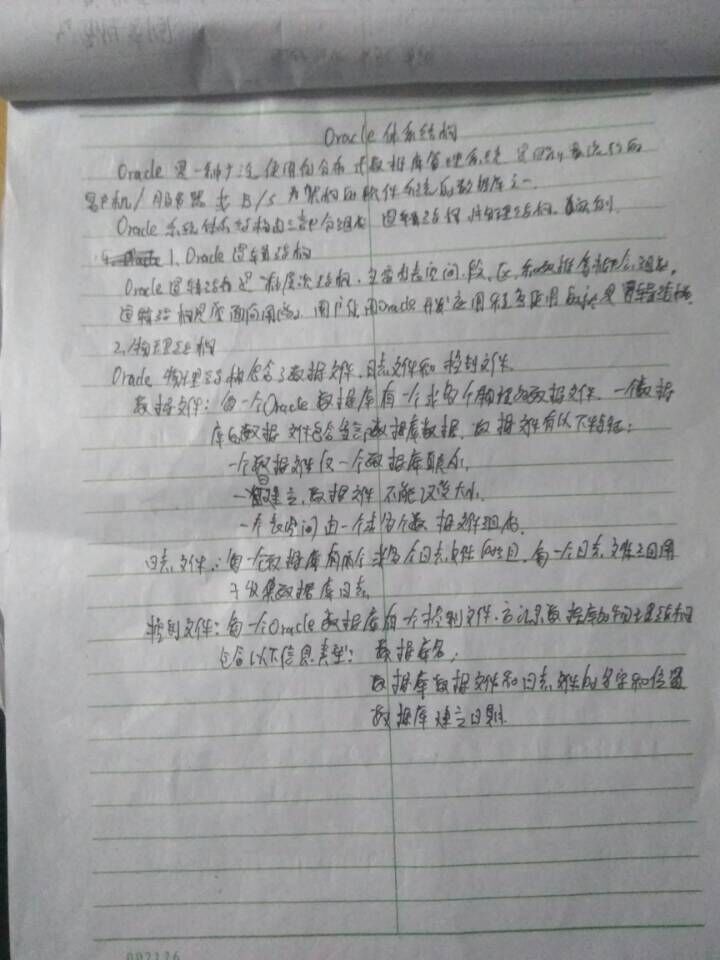 Oracle 体系结构
Oracle 是一种广泛使用的分布式数据库管理系统 是目前最流行的
客户机/服务器或B/S为架构的软件系统的数据库之一.
Oracle 系统体系结构由三部分组成 逻辑结构.物理结构.实例.
1. Oracle 逻辑结构
Oracle 逻辑结构是一种层次结构,主要由表空间.段.区.数据块等概念组成.
逻辑结构是面向用户的.用户使用Oracle开发应用程序使用的就是逻辑结构.
2.物理结构
Oracle 物理结构包含了数据文件.日志文件和控制文件.
数据文件:每一个Oracle数据库有一个或多个物理的数据文件.一个数据
库的数据文件包含全部数据库数据.数据文件有以下特征:
一个数据文件仅一个数据库联系.
一旦建立,数据文件不能改变大小.
一个表空间由一个或多个数据文件组成.
日志文件:每一个数据库有两个或多个日志文件的组.每一个日志文件组用
于收集数据库日志.
控制文件:每一个Oracle数据库有一个控制文件.它记录数据库的物理结构
包含以下信息类型: 数据库名;
数据库数据文件和日志文件的名字和位置
数据库建立日期.